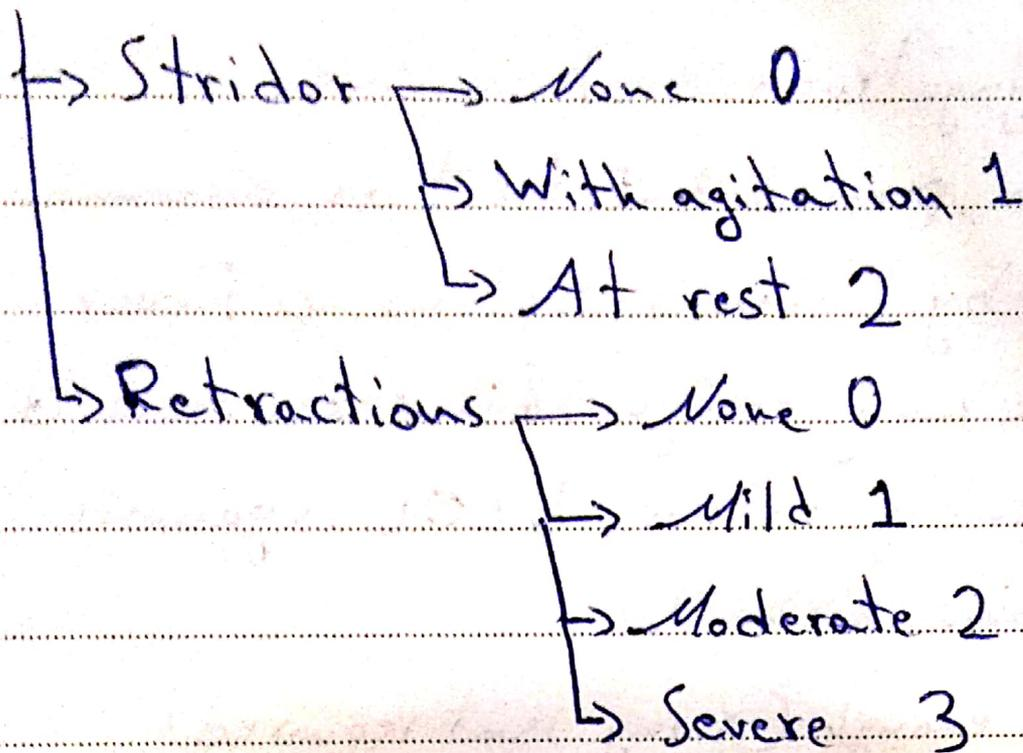 Stridor → None 0
→ With agitation 1
→ At rest 2
Retractions → None 0
→ Mild 1
→ Moderate 2
→ Severe 3